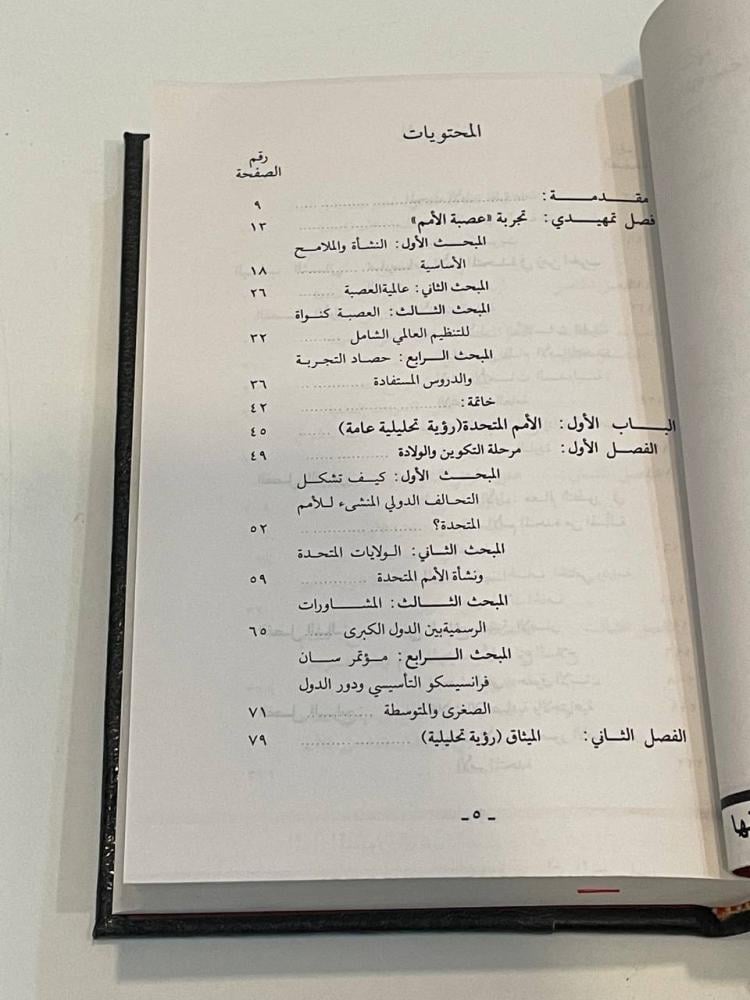 المحتويات
رقم
الصفحة
مقدمة: ٩
فصل تمهيدي: تجربة «عصبة الأمم» ١٣
المبحث الأول: النشأة والملامح
الأساسية ١٨
المبحث الثاني: عالمية العصبة ٢٦
المبحث الثالث: العصبة كنواة
للتنظيم العالمي الشامل ٣٢
المبحث الرابع: حصاد التجربة
والدروس المستفادة ٣٦
خاتمة: ٤٢
الباب الأول: الأمم المتحدة (رؤية تحليلية عامة) ٤٥
الفصل الأول: مرحلة التكوين والولادة ٤٩
المبحث الأول: كيف تشكل
التحالف الدولي المنشىء للأمم
المتحدة؟ ٥٢
المبحث الثاني: الولايات المتحدة
ونشأة الأمم المتحدة ٥٩
المبحث الثالث: المشاورات
الرسمية بين الدول الكبرى ٦٥
المبحث الرابع: مؤتمر سان
فرانسيسكو التأسيسي ودور الدول
الصغرى والمتوسطة ٧١
الفصل الثاني: الميثاق (رؤية تحليلية) ٧٩
ـ ٥ ـ